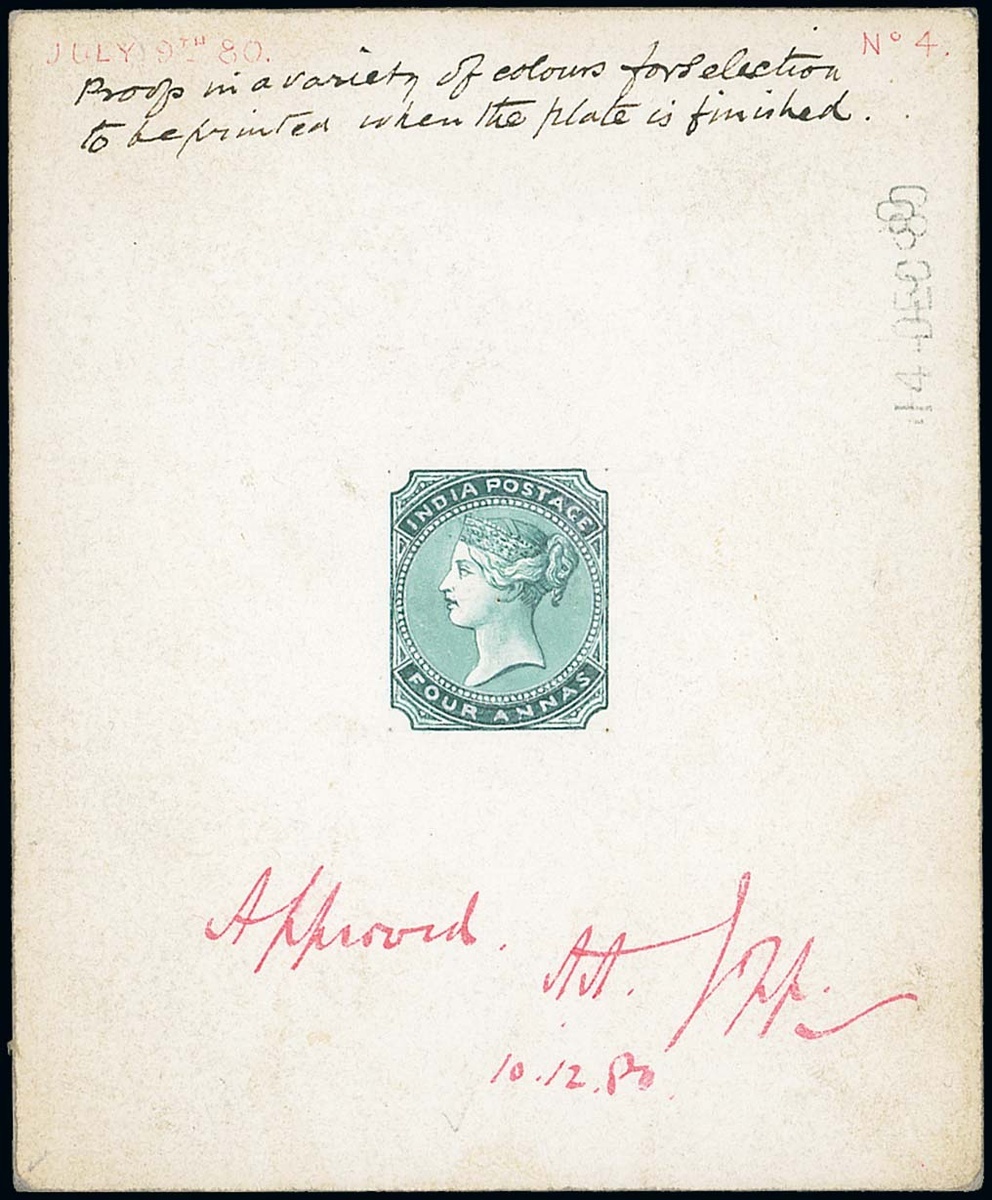 JULY 9TH 80.
No 4.
Proofs in a variety of colours for selection
to be printed when the plate is finished.
14 DEC 80
INDIA POSTAGE
FOUR ANNAS
Approved.
10.12.80